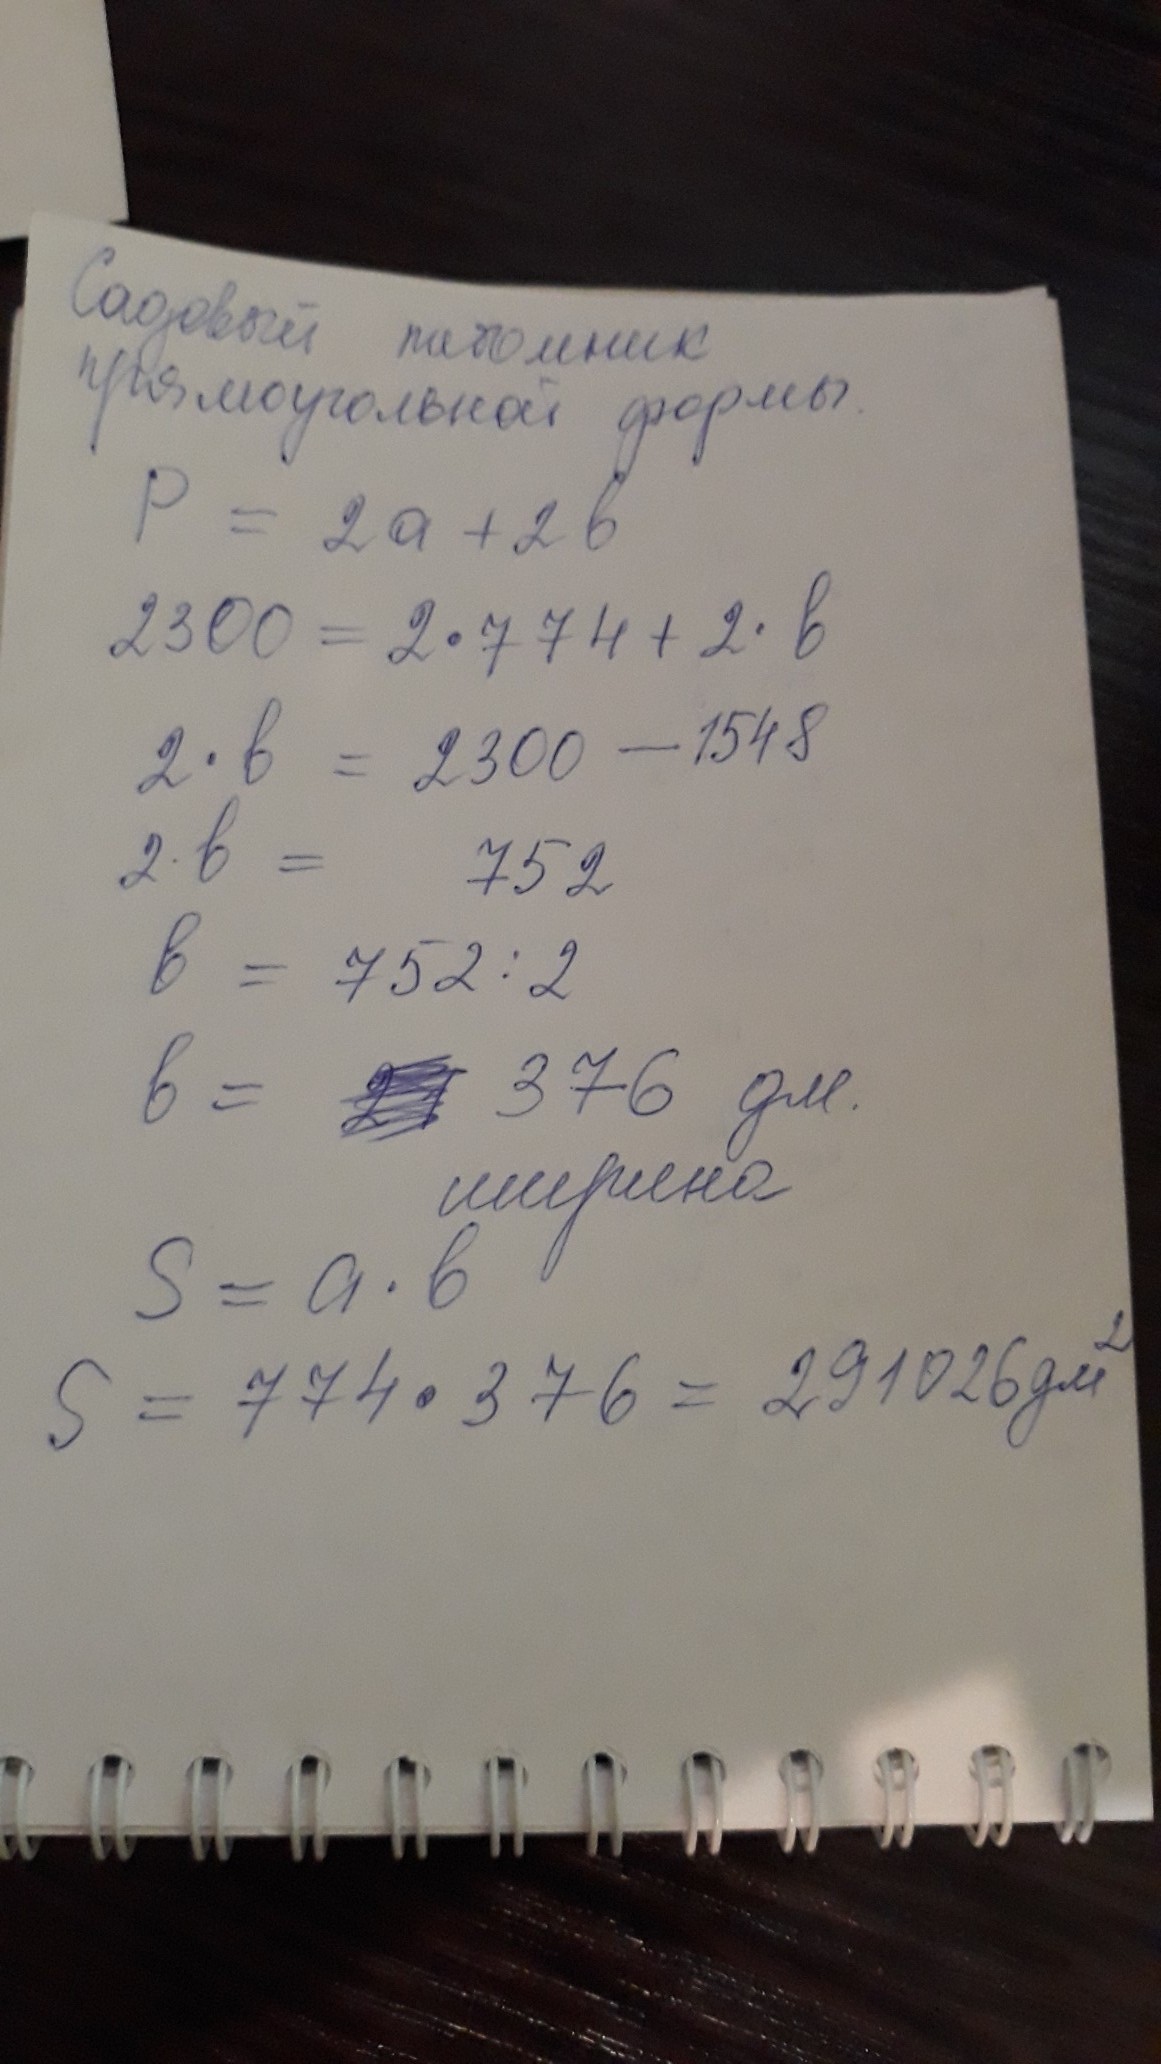 Садовый питомник
прямоугольной формы.
P = 2a + 2b
2300 = 2·774 + 2·b
2·b = 2300 - 1548
2·b = 752
b = 752:2
b = 376 дм.
ширина
S = a·b
S = 774·376 = 291026 дм²